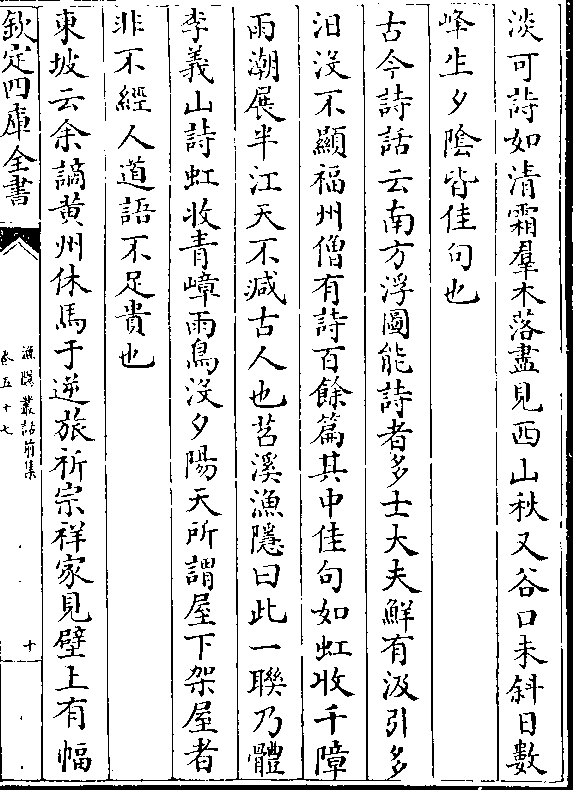 淡可詩如清霜羣木落盡見西山秋又谷口未斜日數
峰生夕陰皆佳句也
古今詩話云南方浮圖能詩者多士大夫鮮有汲引多
汨沒不顯福州僧有詩百餘篇其中佳句如虹收千障
雨潮展半江天不減古人也苕溪漁隱曰此一聯乃體
李義山詩虹收青嶂雨鳥沒夕陽天所謂屋下架屋者
非不經人道語不足貴也
東坡云余謫黄州休馬于逆旅祈宗祥家見壁上有幅
欽定四庫全書
漁隱叢話前集
卷五十七
十